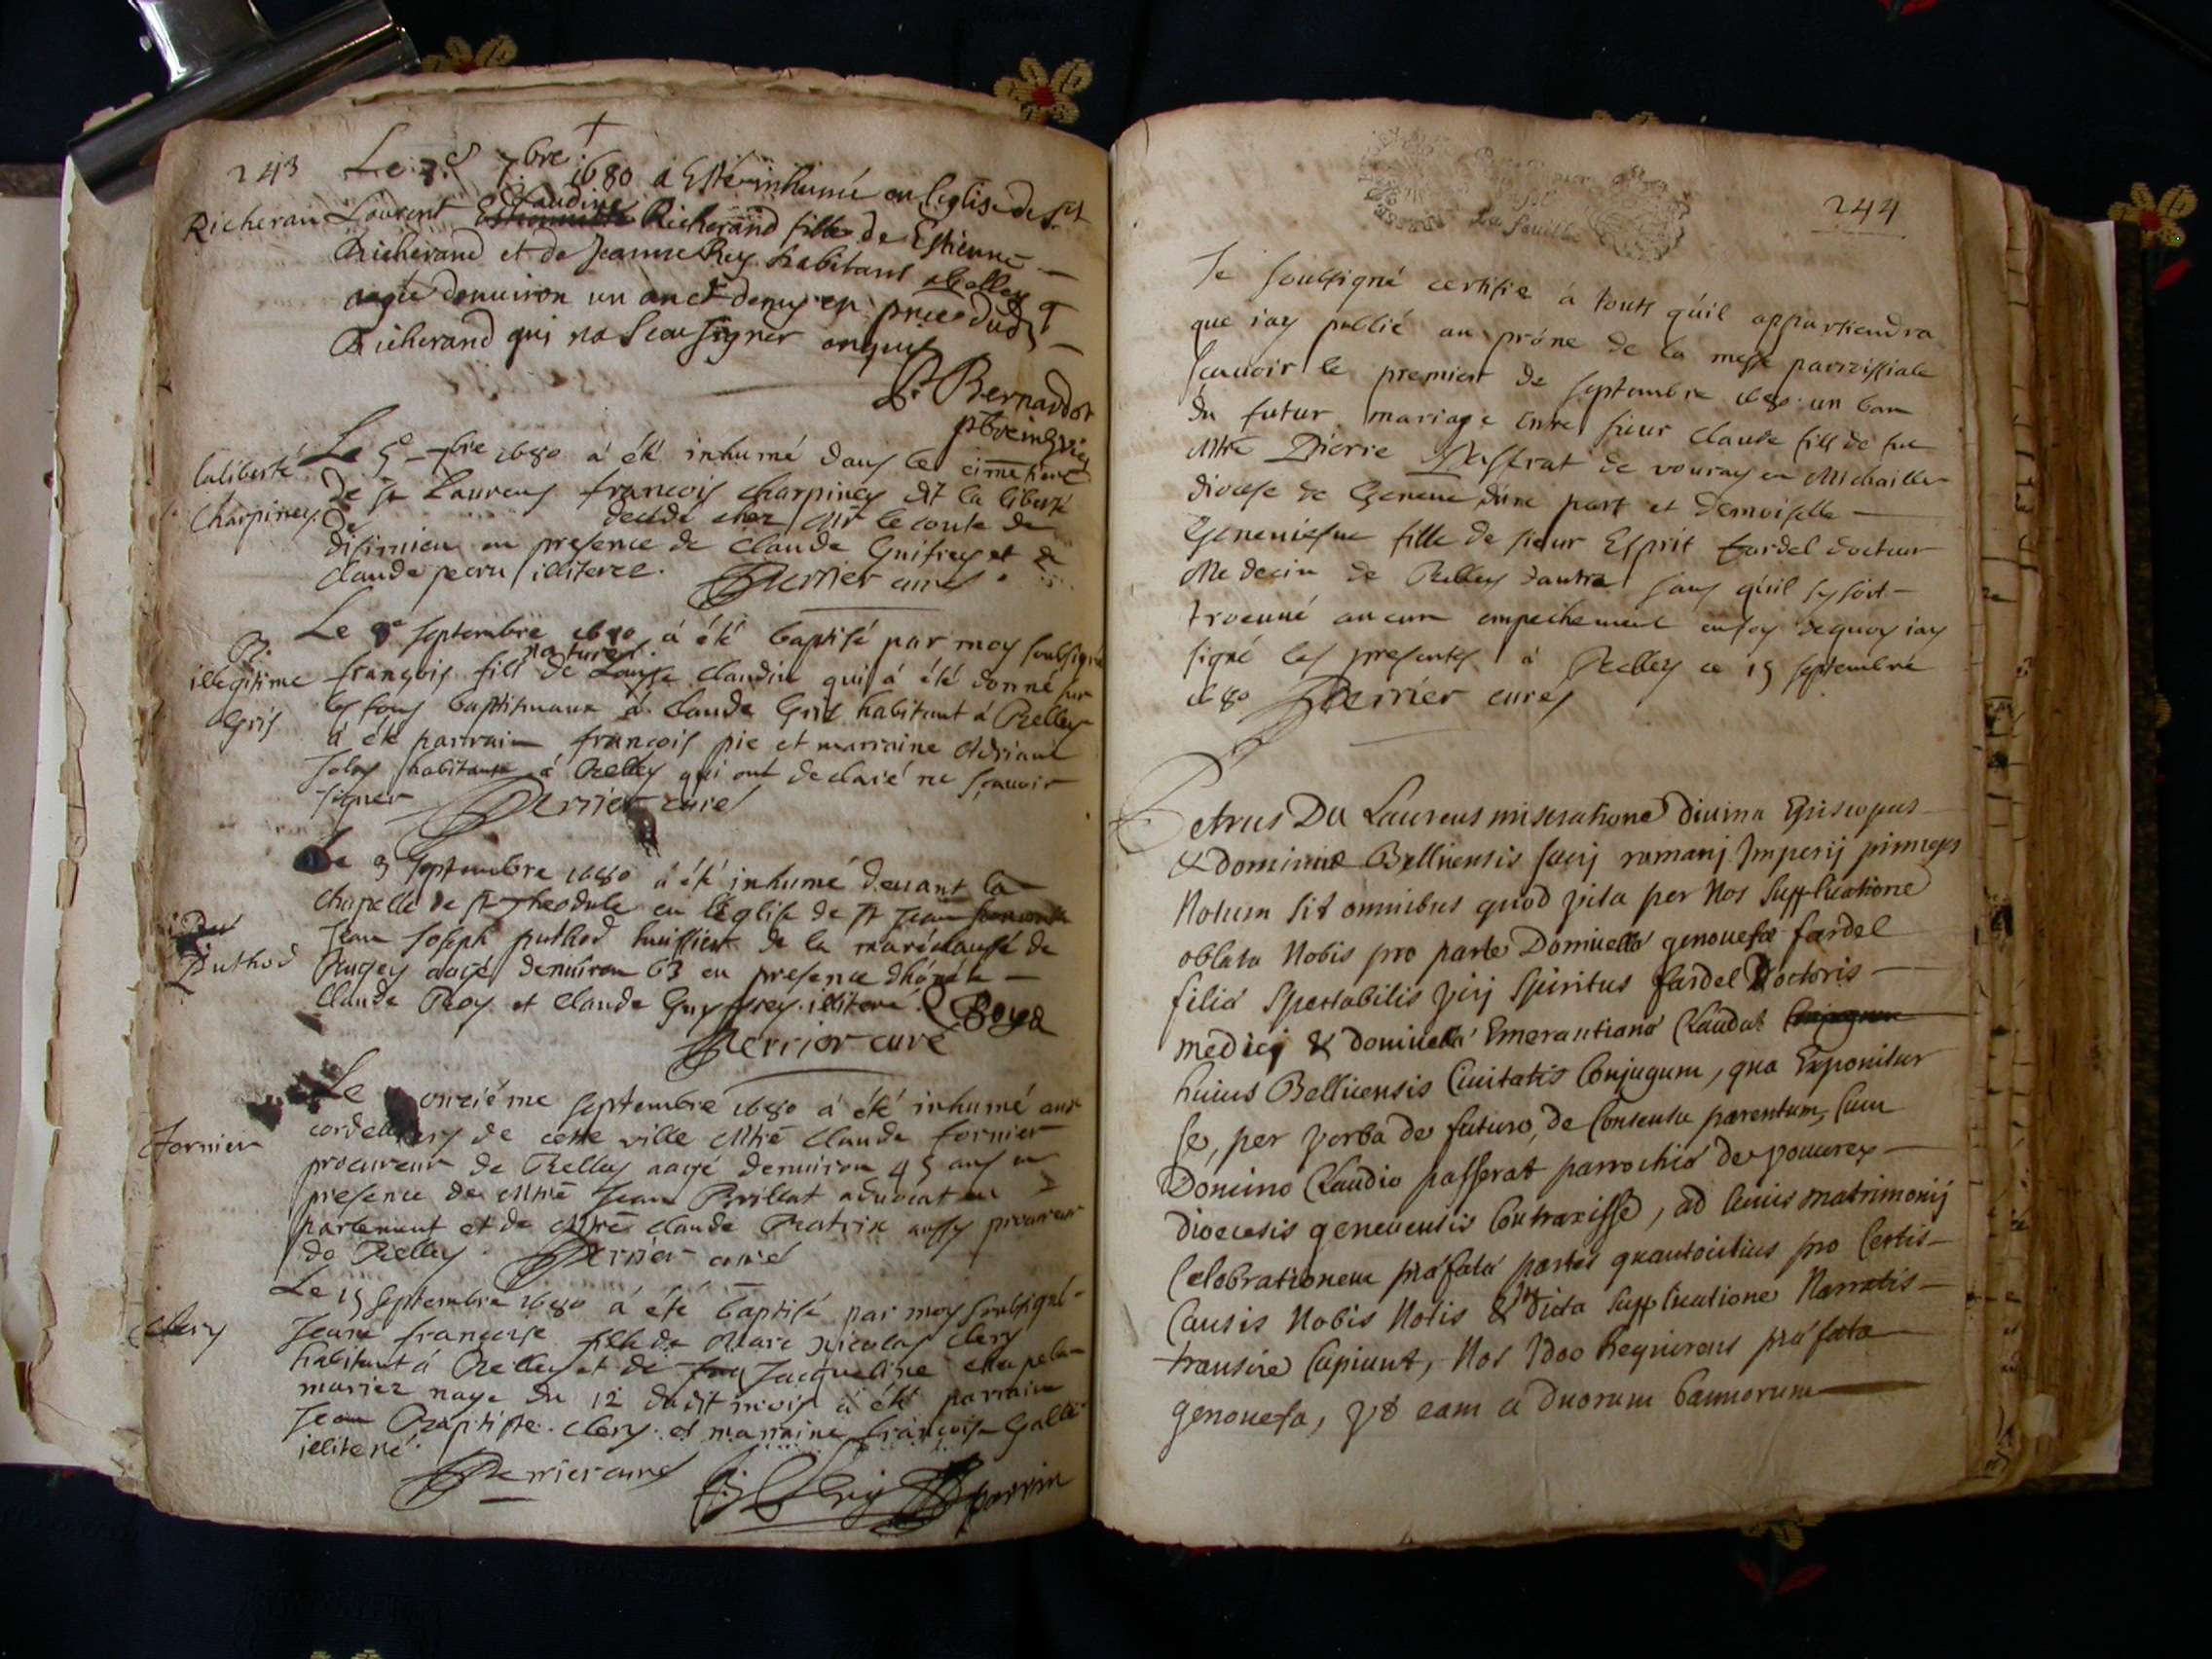 243
Le 7e 7bre 1680 a Esté inhumé en l'eglise de st
Richeran
Laurent Claudine Richerand fille de Estienne
Richerand et de Jeanne Rey habitant a Belley
aagée denuiron un an et demy en pnce dud
Richerand qui na sceu signer enquis
P. Bernardot
laliberté
Charpiney
Le 5e 7bre 1680 á été inhumé dans le cimetiere
de st Laurens françois Charpiney dit la liberté
decedé chez Mr le conte de
disimieu en presence de Claude Guifrey et de
Claude pecru illiterez. Perrier curé
Le 8e septembre 1680 á été baptisé par moy soubsigné
B.
illegitime
Gris
françois fils naturel de Louyse Claudin qui á été donné sur
les fons baptismaux á Claude Gris habitant á Belley
á été parrain françois pic et marraine Adriane
habitante á Belley qui ont declaré ne sçauoir
signer Perrier curé
Le 9 septembre 1680 á été inhumé deuant la
chapelle de st Theodule en l'église de st Jean
Puthod
Jean Joseph puthod huissier de la maréchaussé de
Bugey aagé denuiron 63 en presence d'hónete
Claude Roy et Claude Guyffrey illiteré.
Perrier curé
Le onziéme septembre 1680 á été inhumé aux
fornier
cordelliers de cette ville Mtre Claude fornier
procureur de Belley aagé denuiron 45 ans en
presence de Mtre Jean Brillat aduocat en
parlement et de Mtre Claude Ratrix aussy procureur
de Belley. Perrier curé
Le 15 septembre 1680 á été baptisé par moy soubsigné
Clery
Jeane françoise fille de Marc Nicolas Clery
habitant á Belley et de Jacqueline
mariez naye du 12 dudit mois á été parrain
Jean Baptiste Clery et marraine françoise Gallé
illiteré.
Perrier curé
parrin
244
Je soubsigné certifie á touts qu'il appartiendra
que iay publié au próne de la messe parroissiale
scauoir le premier de septembre 1680 un ban
du futur mariage entre sieur Claude fils de feu
Mtre Pierre Passerat de vouray en Michaille
diocese de Geneue d'une part et demoiselle
Geneuiefue fille de sieur Esprit fardel docteur
Medecin de Belley d'autre sans qu'il sy soit
treuué aucun empechement en foy dequoy iay
signé les presentes á Belley ce 15 septembre
1680 Perrier curé
Petrus Du Laurens miseratione diuina Episcopus
& dominus Bellicensis sacri romanj Imperij princeps
Notum sit omnibus quod visa per Nos supplicatione
oblata Nobis pro parte Domicellæ genouefæ fardel
filiæ spectabilis virj spiritus fardel Doctoris
medicj & domicellæ Emerantianæ Claudat
huius Bellicensis Ciuitatis Conjugum, qua Exponitur
se, per verba de futuro, de Consensu parentum, Cum
Domino Claudio passerat parrochiæ de vouurex
diœcesis geneuensis Contraxisse, ad Cuius matrimonij
Celebrationem præfatæ partes quantocitius pro Certis
Causis Nobis Notis & in dicta supplicatione Narratis
transire Cupiunt, Nos Ideo Requirens præfata
genouefa, vt eam a duorum bannorum